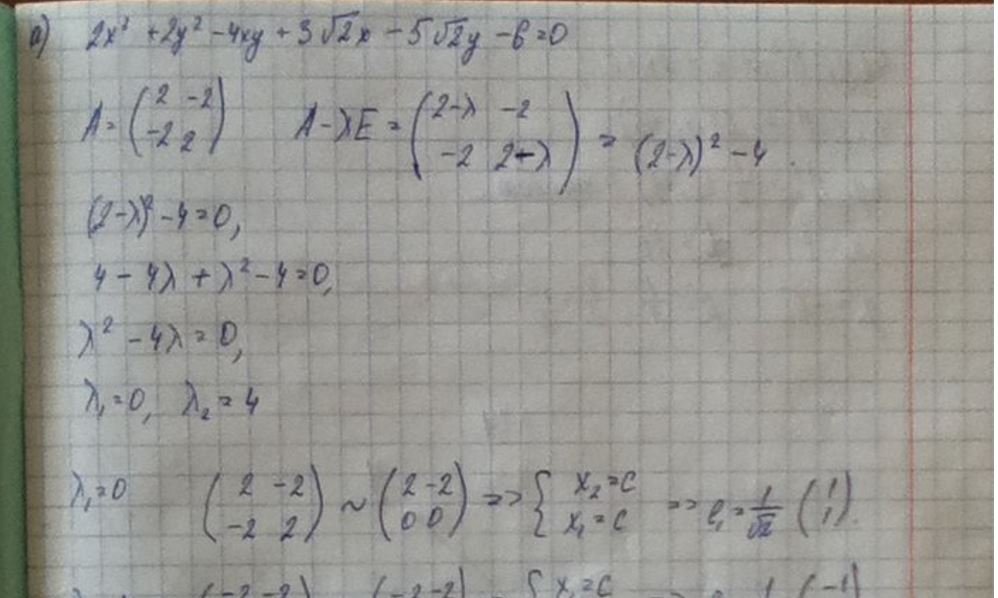 а) 2x² + 2y² - 4xy + 3√2x - 5√2y - 6 = 0
A = (2 -2; -2 2) A - λE = (2-λ -2; -2 2-λ) = (2-λ)² - 4.
(2-λ)² - 4 = 0,
4 - 4λ + λ² - 4 = 0,
λ² - 4λ = 0,
λ₁ = 0, λ₂ = 4
λ₁ = 0 (2 -2; -2 2) ~ (2 -2; 0 0) => { x₂ = C; x₁ = C => e₁ = 1/√2 (1; 1).
(-2 -2) (-2 -2) { x₁ = C 1 (-1)